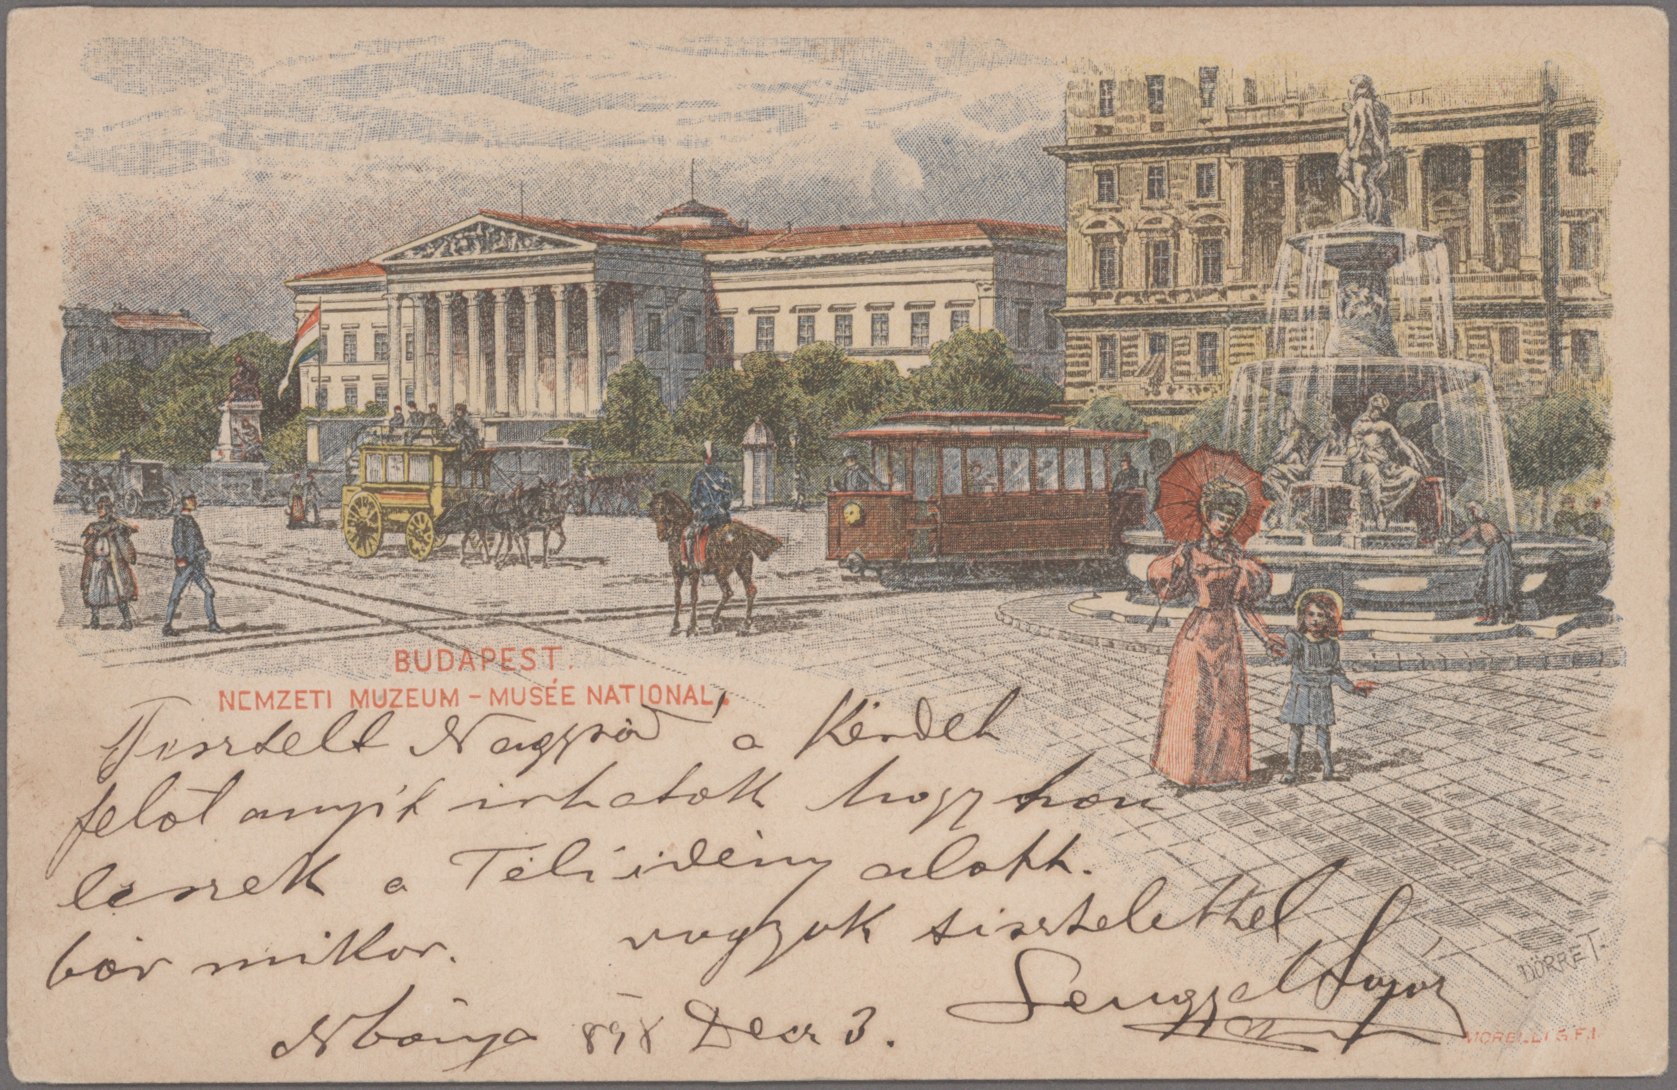 BUDAPEST.
NEMZETI MUZEUM – MUSÉE NATIONAL.
Tisztelt Nagysád a Kérdek
felöl anyit irhatok hogy hon
leszek a Téli idény alatt.
bár mikor. vagyok tisztelettel
Nbánya 898 Decz 3.
DÖRRE T.
MORELLI G. F. I.